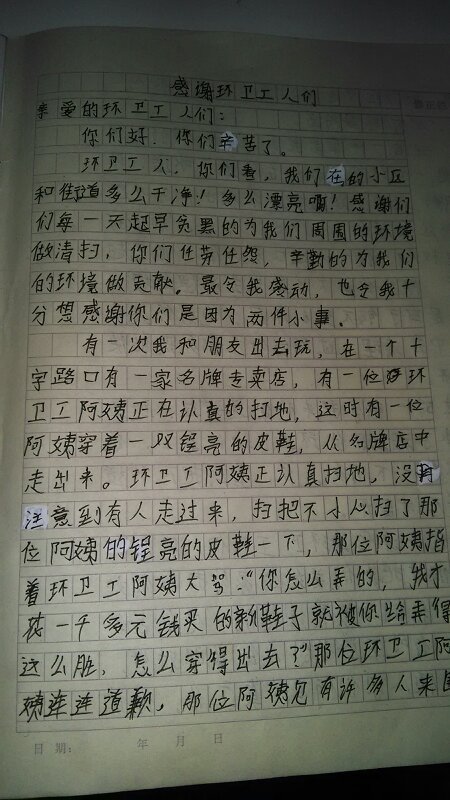 感谢环卫工人们
亲爱的环卫工人们：
你们好！你们辛苦了。
环卫工人，你们看，我们在的小区
和街道多么干净！多么漂亮啊！感谢们
们每一天起早贪黑的为我们周围的环境
做清扫，你们任劳任怨，辛勤的为我们
的环境做贡献。最令我感动，也令我十
分想感谢你们是因为两件小事。
有一次我和朋友出去玩，在一个十
字路口有一家名牌专卖店，有一位环
卫工阿姨正在认真的扫地，这时有一位
阿姨穿着一双锃亮的皮鞋，从名牌店中
走出来。环卫工阿姨正认真扫地，没有
注意到有人走过来，扫把不小心扫了那
位阿姨的锃亮的皮鞋一下，那位阿姨指
着环卫工阿姨大骂：“你怎么弄的，我才
花一千多元钱买的新鞋子就被你给弄得
这么脏，怎么穿得出去？”那位环卫工阿
姨连连道歉，那位阿姨见有许多人来围
日期： 年 月 日